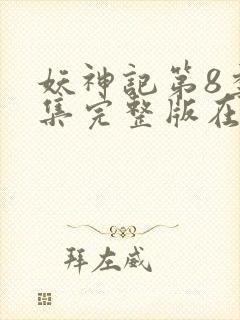 妖神記第8
集完整版在
拜左威